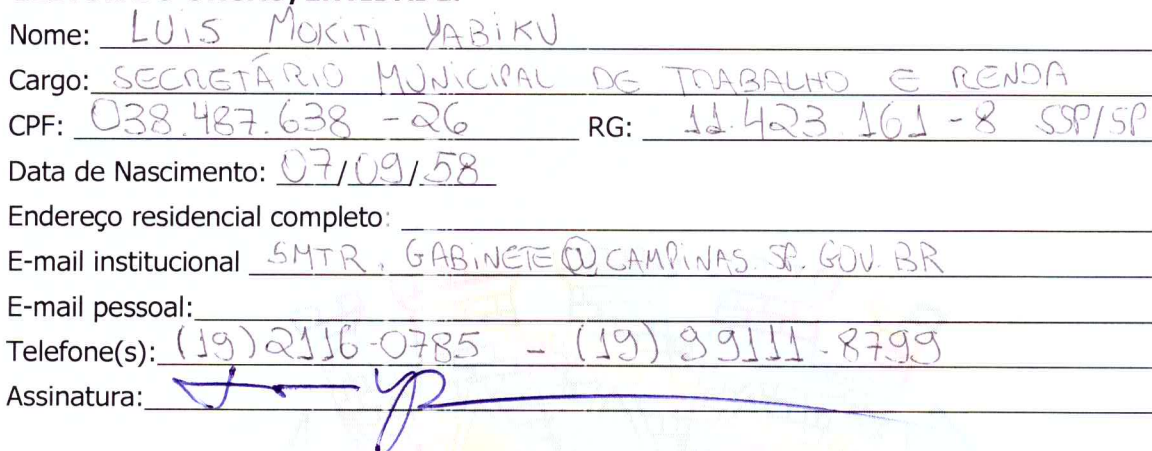 Nome: LUIS MOKITI YABIKU
Cargo: SECRETÁRIO MUNICIPAL DE TRABALHO E RENDA
CPF: 038.487.638-26 RG: 11.423.161-8 SSP/SP
Data de Nascimento: 07/09/58
Endereço residencial completo:
E-mail institucional SMTR.GABINETE@CAMPINAS.SP.GOV.BR
E-mail pessoal:
Telefone(s): (19) 2116-0785 - (19) 99111-8799
Assinatura: